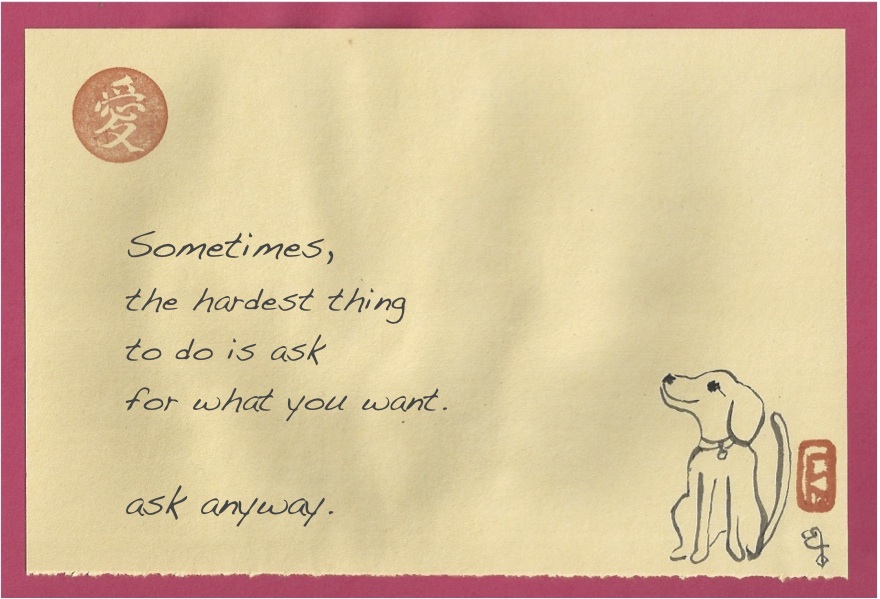 愛
Sometimes,
the hardest thing
to do is ask
for what you want.
ask anyway.